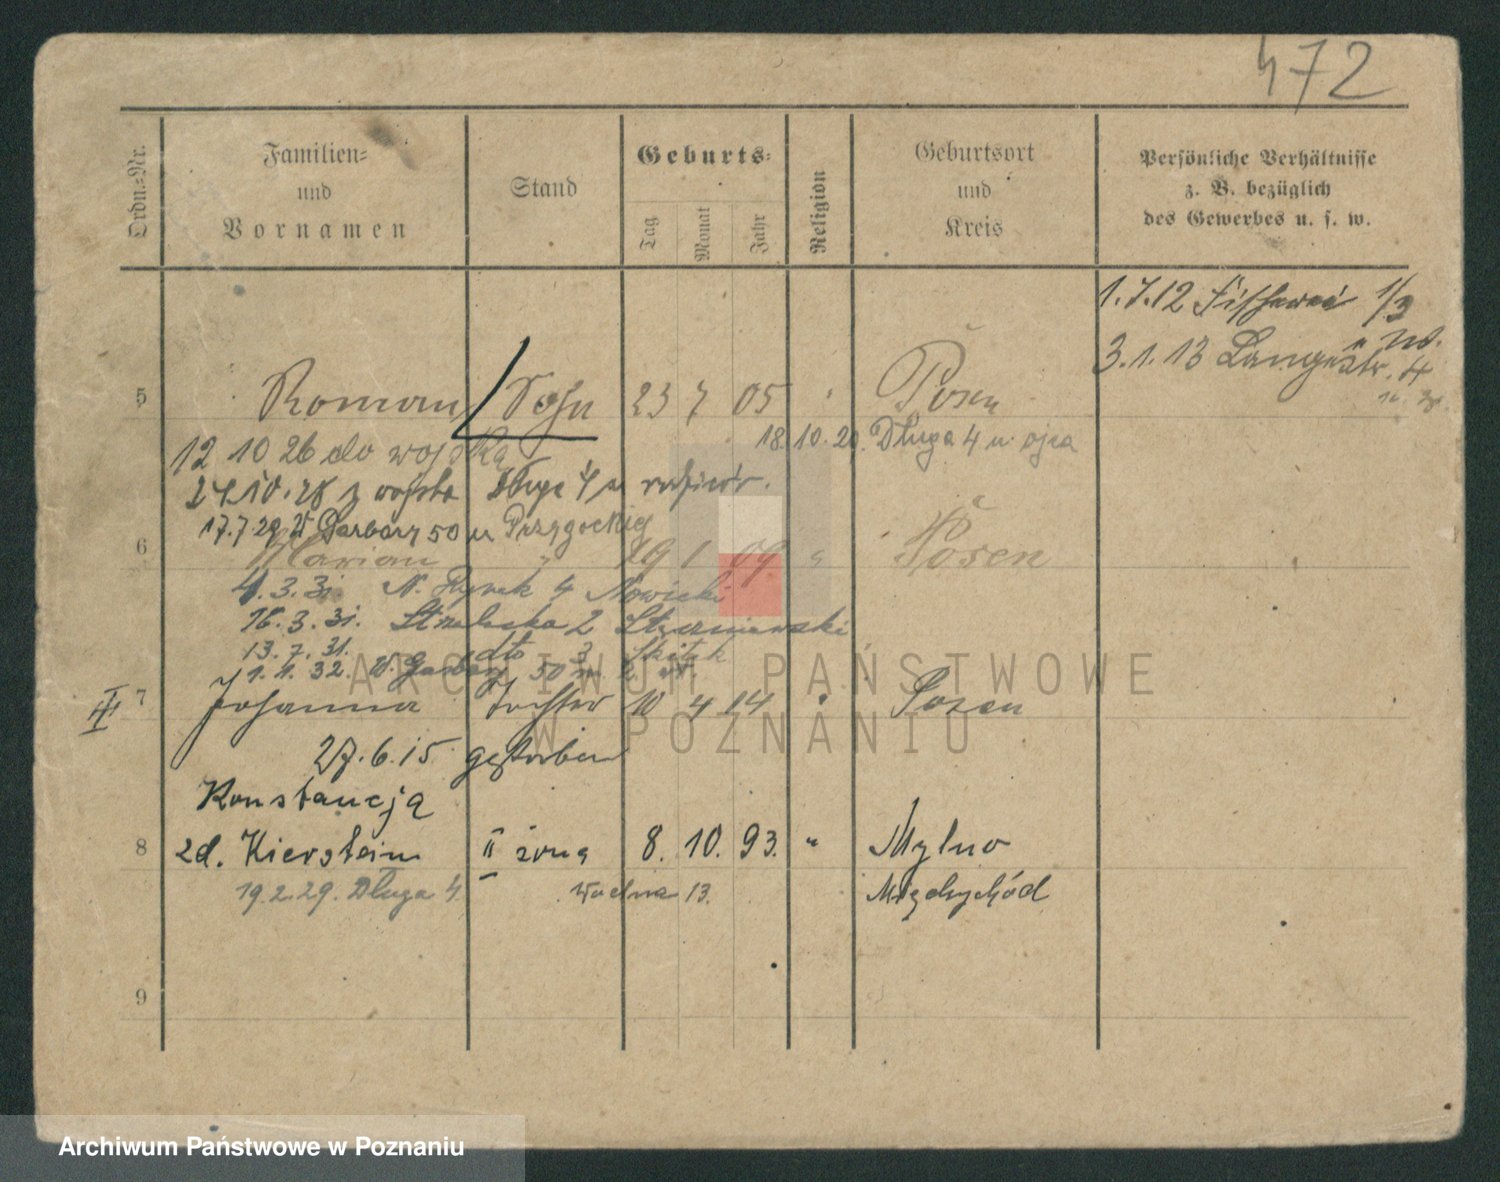 472
Ordn.-Nr.
Familien-
und
Vornamen
Stand
Geburts-
Tag
Monat
Jahr
Religion
Geburtsort
und
Kreis
Persönliche Verhältnisse
z. B. bezüglich
des Gewerbes u. s. w.
1.7.12 1/3
3.1.13 Langestr. 4
5 Roman Sohn 23 7 05 " Posen
18.10.20. Długa 4 u. ojca
12 10 26 do wojska
24.10.28 z wojska Długa 4 u rodziców.
17.7.29 W Garbary 50 u Przygockiej
6 Marian " 19 1 09 " Posen
4.3.31 N. Rynek 4 Nowicki
16.3.31. Strzelecka 2
13.7.31. dto 3
1.1.32. W. Garbary 50
7 Johanna Tochter 10 4 14 " Posen
27.6.15 gestorben
Konstancja
8 zd. Kierstein II żona 8. 10. 93. " Mylno
19.2.29. Długa 4 Wodna 13. Międzychód
9
ARCHIWUM PAŃSTWOWE
W POZNANIU
Archiwum Państwowe w Poznaniu